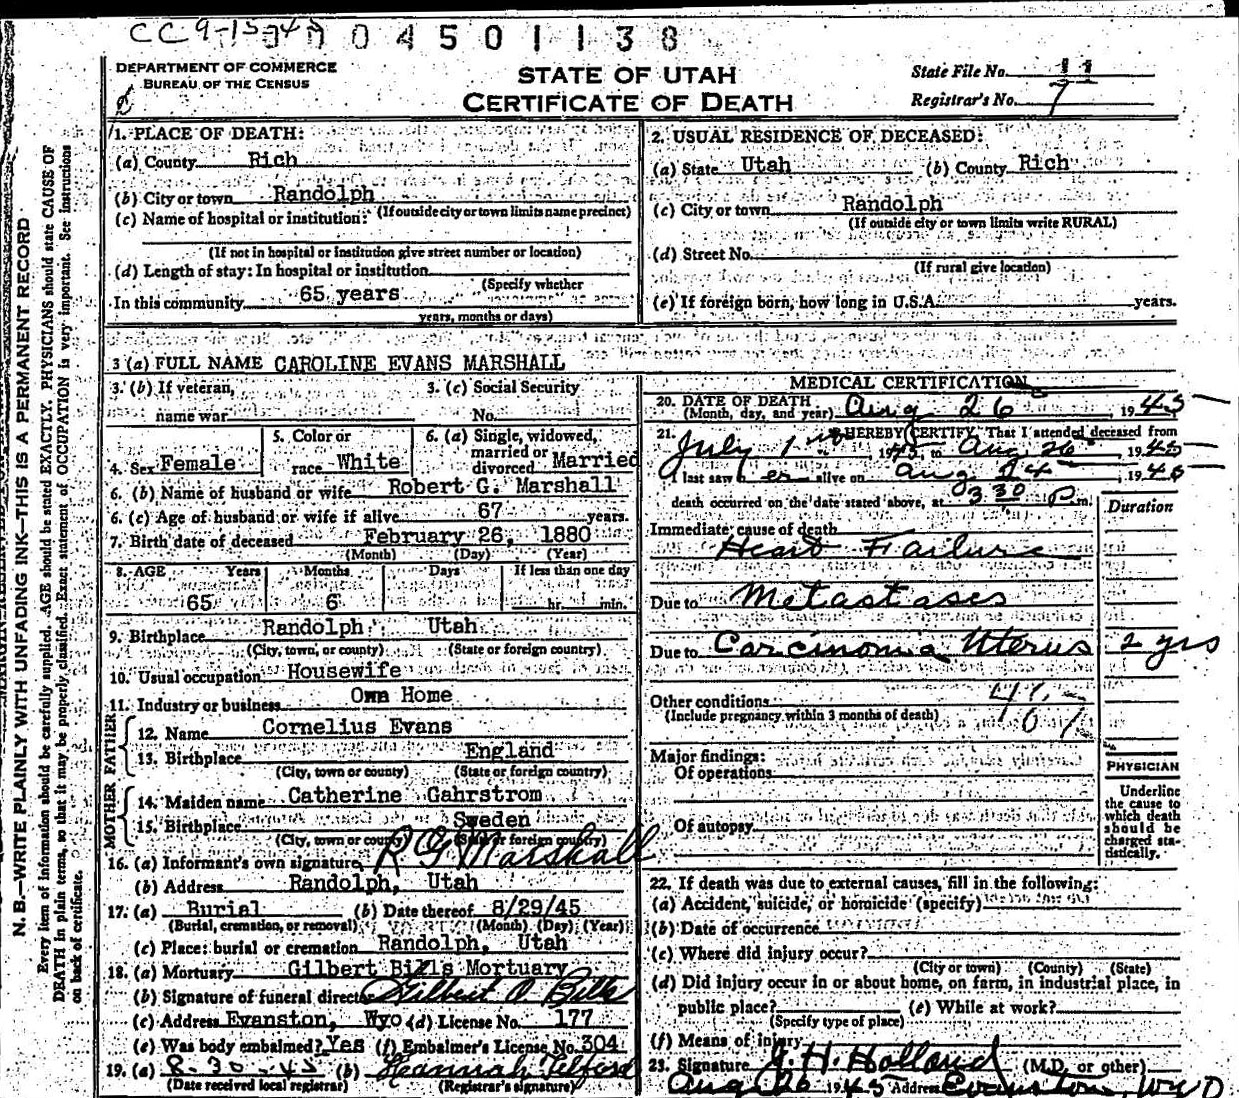 CC 9-13-45 0 4 5 0 1 1 3 8
DEPARTMENT OF COMMERCE
BUREAU OF THE CENSUS
STATE OF UTAH
CERTIFICATE OF DEATH
State File No. 11
Registrar's No. 7
N. B.—WRITE PLAINLY WITH UNFADING INK—THIS IS A PERMANENT RECORD
Every item of information should be carefully supplied. AGE should be stated EXACTLY. PHYSICIANS should state CAUSE OF
DEATH in plain terms, so that it may be properly classified. Exact statement of OCCUPATION is very important. See instructions
on back of certificate.
1. PLACE OF DEATH:
(a) County Rich
(b) City or town Randolph
(If outside city or town limits name precinct)
(c) Name of hospital or institution:
(If not in hospital or institution give street number or location)
(d) Length of stay: In hospital or institution
(Specify whether
In this community 65 years
years, months or days)
2. USUAL RESIDENCE OF DECEASED:
(a) State Utah (b) County Rich
(c) City or town Randolph
(If outside city or town limits write RURAL)
(d) Street No.
(If rural give location)
(e) If foreign born, how long in U.S.A. years.
3 (a) FULL NAME CAROLINE EVANS MARSHALL
3. (b) If veteran,
name war
3. (c) Social Security
No.
4. Sex Female
5. Color or
race White
6. (a) Single, widowed,
married or
divorced Married
6. (b) Name of husband or wife Robert G. Marshall
6. (c) Age of husband or wife if alive 67 years.
7. Birth date of deceased February 26, 1880
(Month) (Day) (Year)
8. AGE Years Months Days If less than one day
65 6 hr. min.
9. Birthplace Randolph Utah
(City, town, or county) (State or foreign country)
10. Usual occupation Housewife
11. Industry or business Own Home
FATHER
12. Name Cornelius Evans
13. Birthplace England
(City, town or county) (State or foreign country)
MOTHER
14. Maiden name Catherine Gahrstrom
15. Birthplace Sweden
(City, town or county) (State or foreign country)
16. (a) Informant's own signature R G Marshall
(b) Address Randolph, Utah
17. (a) Burial (b) Date thereof 8/29/45
(Burial, cremation, or removal) (Month) (Day) (Year)
(c) Place: burial or cremation Randolph, Utah
18. (a) Mortuary Gilbert Bills Mortuary
(b) Signature of funeral director Gilbert O Bills
(c) Address Evanston, Wyo (d) License No. 177
(e) Was body embalmed? Yes (f) Embalmer's License No. 304
19. (a) 8-30-45 (b) Hannah Telford
(Date received local registrar) (Registrar's signature)
MEDICAL CERTIFICATION
20. DATE OF DEATH
(Month, day, and year) Aug 26, 1945
21. I HEREBY CERTIFY, That I attended deceased from
July 1 1945 to Aug 26 1945
I last saw h er alive on Aug. 24 1945
death occurred on the date stated above, at 3 30 P m.
Duration
Immediate cause of death
Heart Failure
Due to Metastases
Due to Carcinoma Uterus 2 yrs
Other conditions
(Include pregnancy within 3 months of death)
Major findings:
Of operations
Of autopsy
PHYSICIAN
Underline
the cause to
which death
should be
charged sta-
tistically.
22. If death was due to external causes, fill in the following:
(a) Accident, suicide, or homicide (specify)
(b) Date of occurrence
(c) Where did injury occur?
(City or town) (County) (State)
(d) Did injury occur in or about home, on farm, in industrial place, in
public place? (e) While at work?
(Specify type of place)
(f) Means of injury
23. Signature J. H. Holland (M.D. or other)
Aug 26 1945 Address Evanston, Wyo